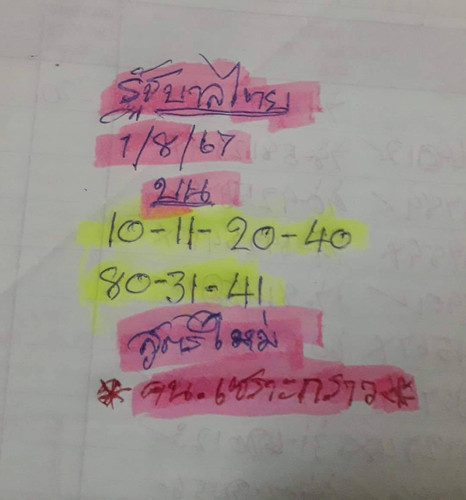 รัฐบาลไทย
1/8/67
บน
10-11-20-40
80-31-41
สูตรใหม่
* จน.เซราะกราว *